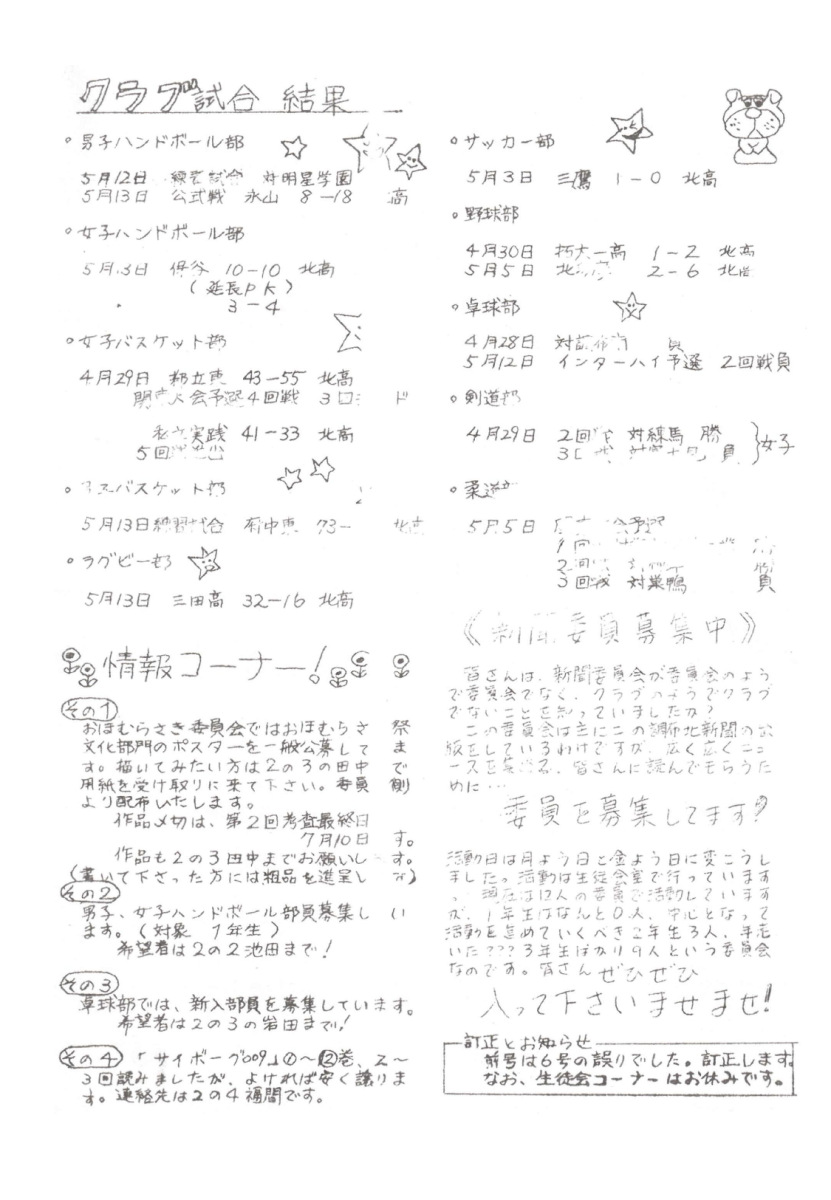 クラブ試合 結果
・男子ハンドボール部
5月12日 練習試合 対明星学園
5月13日 公式戦 永山 8-18 高
・女子ハンドボール部
5月13日 保谷 10-10 北高
(延長PK)
3-4
・女子バスケット部
4月29日 都立東 43-55 北高
関東大会予選4回戦
実践 41-33 北高
5回
バスケット部
5月13日練習試合 府中東 73- 北高
・ラグビー部
5月13日 三田高 32-16 北高
・サッカー部
5月3日 三鷹 1-0 北高
・野球部
4月30日 大一高 1-2 北高
5月5日 2-6 北高
・卓球部
4月28日 負
5月12日 インターハイ予選 2回戦負
・剣道部
4月29日 2回戦 対練馬 勝
負
女子
・柔道部
5月5日 予選
2回
3回戦 対巣鴨 負
情報コーナー!
その1
おほむらさき委員会ではおほむらさ 祭
文化部門のポスターを一般公募して ま
す。描いてみたい方は2の3の田中 で
用紙を受け取りに来て下さい。委員 側
より配布いたします。
作品〆切は、第2回考査最終日
7月10日 す。
作品も2の3田中までお願いし す。
(書いて下さった方には粗品を進呈し
その2
男子、女子ハンドボール部員募集し い
ます。(対象 1年生)
希望者は2の2池田まで!
その3
卓球部では、新入部員を募集しています。
希望者は2の3の岩田まで!
その4 「サイボーグ009」①〜⑫巻、2〜
3回読みましたが、よければ安く譲りま
す。連絡先は2の4福間です。
《新聞委員募集中》
皆さんは、新聞委員会が委員会のよう
で委員会でなく、クラブのようでクラブ
でないことを知っていましたか?
この委員会は主にこの調布北新聞の出
版をしているわけですが、広く広くニュ
ースを 皆さんに読んでもらうた
めに…
委員を募集してます?
活動日は月よう日と金よう日に変こうし
ました。活動は生徒会室で行っています
。現在は12人の委員で活動しています
が、1年生はなんと0人、中心となって
活動を進めていくべき2年生3人、手老
いた???3年生ばかり9人という委員会
なのです。皆さん ぜひぜひ
入って下さいませませ!
訂正とお知らせ
前号は6号の誤りでした。訂正します。
なお、生徒会コーナーはお休みです。